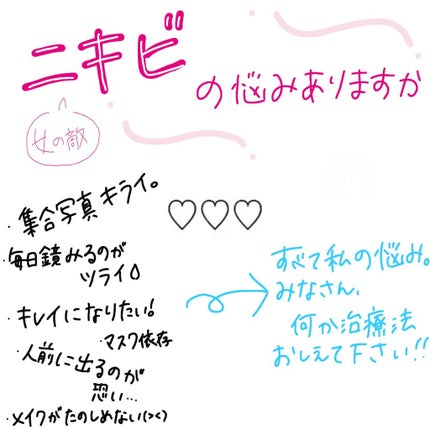 ニキビ
の悩みありますか
女の敵
・集合写真キライ。
・毎日鏡みるのが
ツライ
・キレイになりたい!
マスク依存
・人前に出るのが
恐い…
・メイクがたのしめない(><)
すべて私の悩み。
みなさん、
何か治療法
おしえて下さい!!